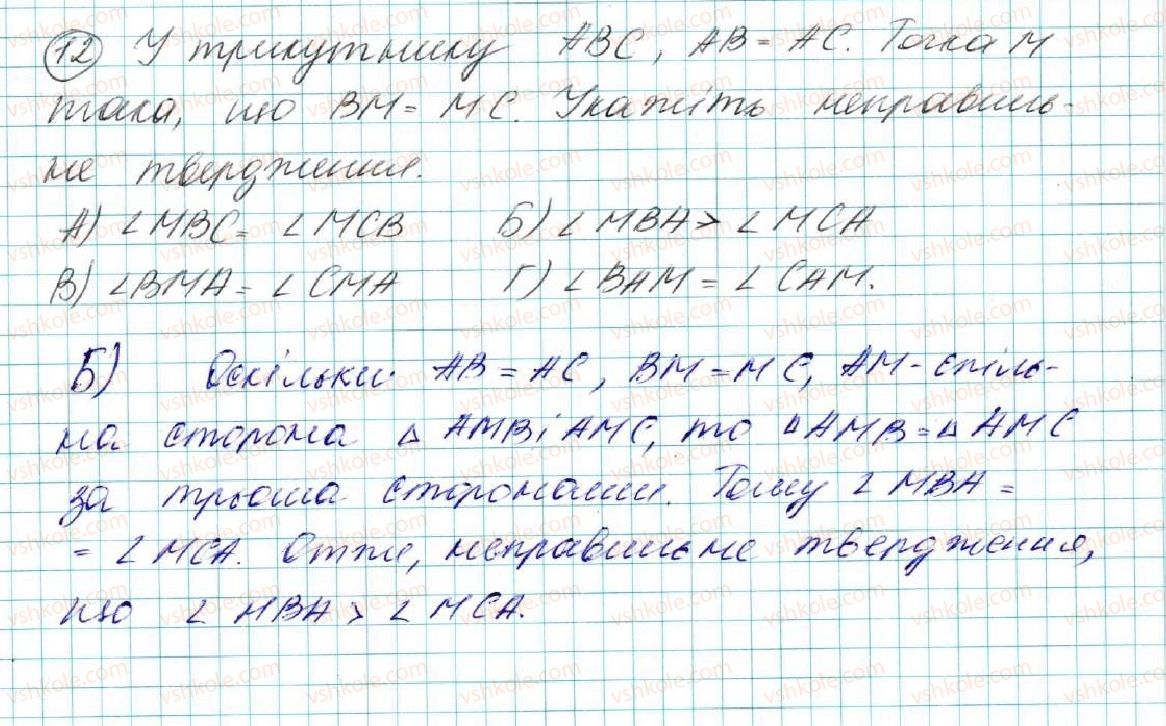 12 У трикутнику ABC, AB = AC. Точка M
така, що BM = MC. Укажіть неправиль-
не твердження.
А) ∠MBC = ∠MCB Б) ∠MBA > ∠MCA
В) ∠BMA = ∠CMA Г) ∠BAM = ∠CAM.
Б) Оскільки AB = AC, BM = MC, AM - спіль-
на сторона △ AMB і AMC, то △AMB = △ AMC
за трьома сторонами. Тому ∠ MBA =
= ∠ MCA. Отже, неправильне твердження,
що ∠ MBA > ∠ MCA.